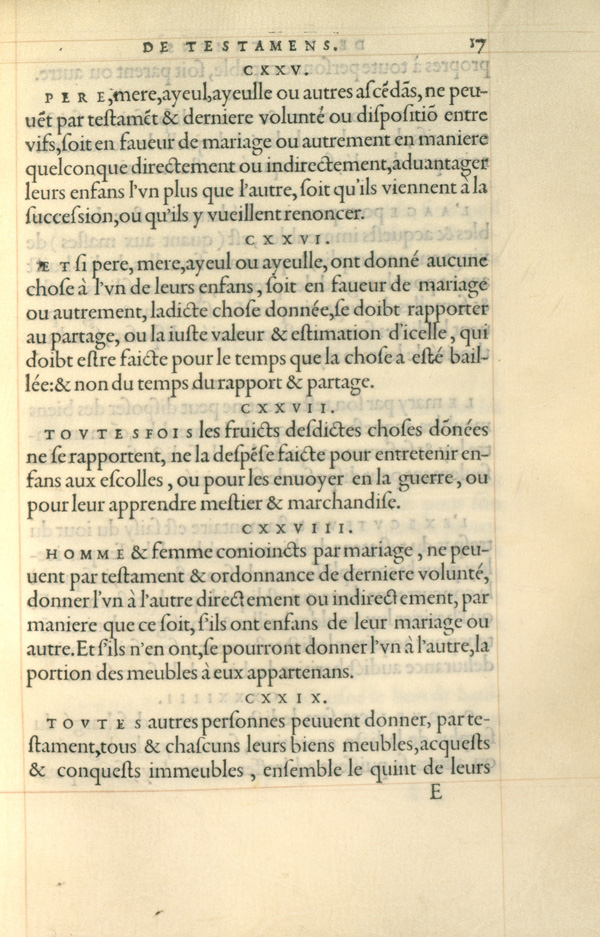 DE TESTAMENS. 17
CXXV.
PERE, mere, ayeul, ayeulle ou autres aſcẽdãs, ne peu-
uẽt par teſtamẽt & derniere volunté ou diſpoſitiõ entre
vifs, ſoit en faueur de mariage ou autrement en maniere
quelconque directement ou indirectement, aduantager
leurs enfans l'vn plus que l'autre, ſoit qu'ils viennent à la
ſucceſſion, ou qu'ils y vueillent renoncer.
CXXVI.
ET ſi pere, mere, ayeul ou ayeulle, ont donné aucune
choſe à l'vn de leurs enfans, ſoit en faueur de mariage
ou autrement, ladicte choſe donnée, ſe doibt rapporter
au partage, ou la iuſte valeur & eſtimation d'icelle, qui
doibt eſtre faicte pour le temps que la choſe a eſté bail-
lée: & non du temps du rapport & partage.
CXXVII.
TOVTESFOIS les fruicts deſdictes choſes dõnées
ne ſe rapportent, ne la deſpẽſe faicte pour entretenir en-
fans aux eſcolles, ou pour les enuoyer en la guerre, ou
pour leur apprendre meſtier & marchandiſe.
CXXVIII.
HOMME & femme conioincts par mariage, ne peu-
uent par teſtament & ordonnance de derniere volunté,
donner l'vn à l'autre directement ou indirectement, par
maniere que ce ſoit, ſ'ils ont enfans de leur mariage ou
autre. Et ſ'ils n'en ont, ſe pourront donner l'vn à l'autre, la
portion des meubles à eux appartenans.
CXXIX.
TOVTES autres perſonnes peuuent donner, par te-
ſtament, tous & chaſcuns leurs biens meubles, acqueſts
& conqueſts immeubles, enſemble le quint de leurs
E